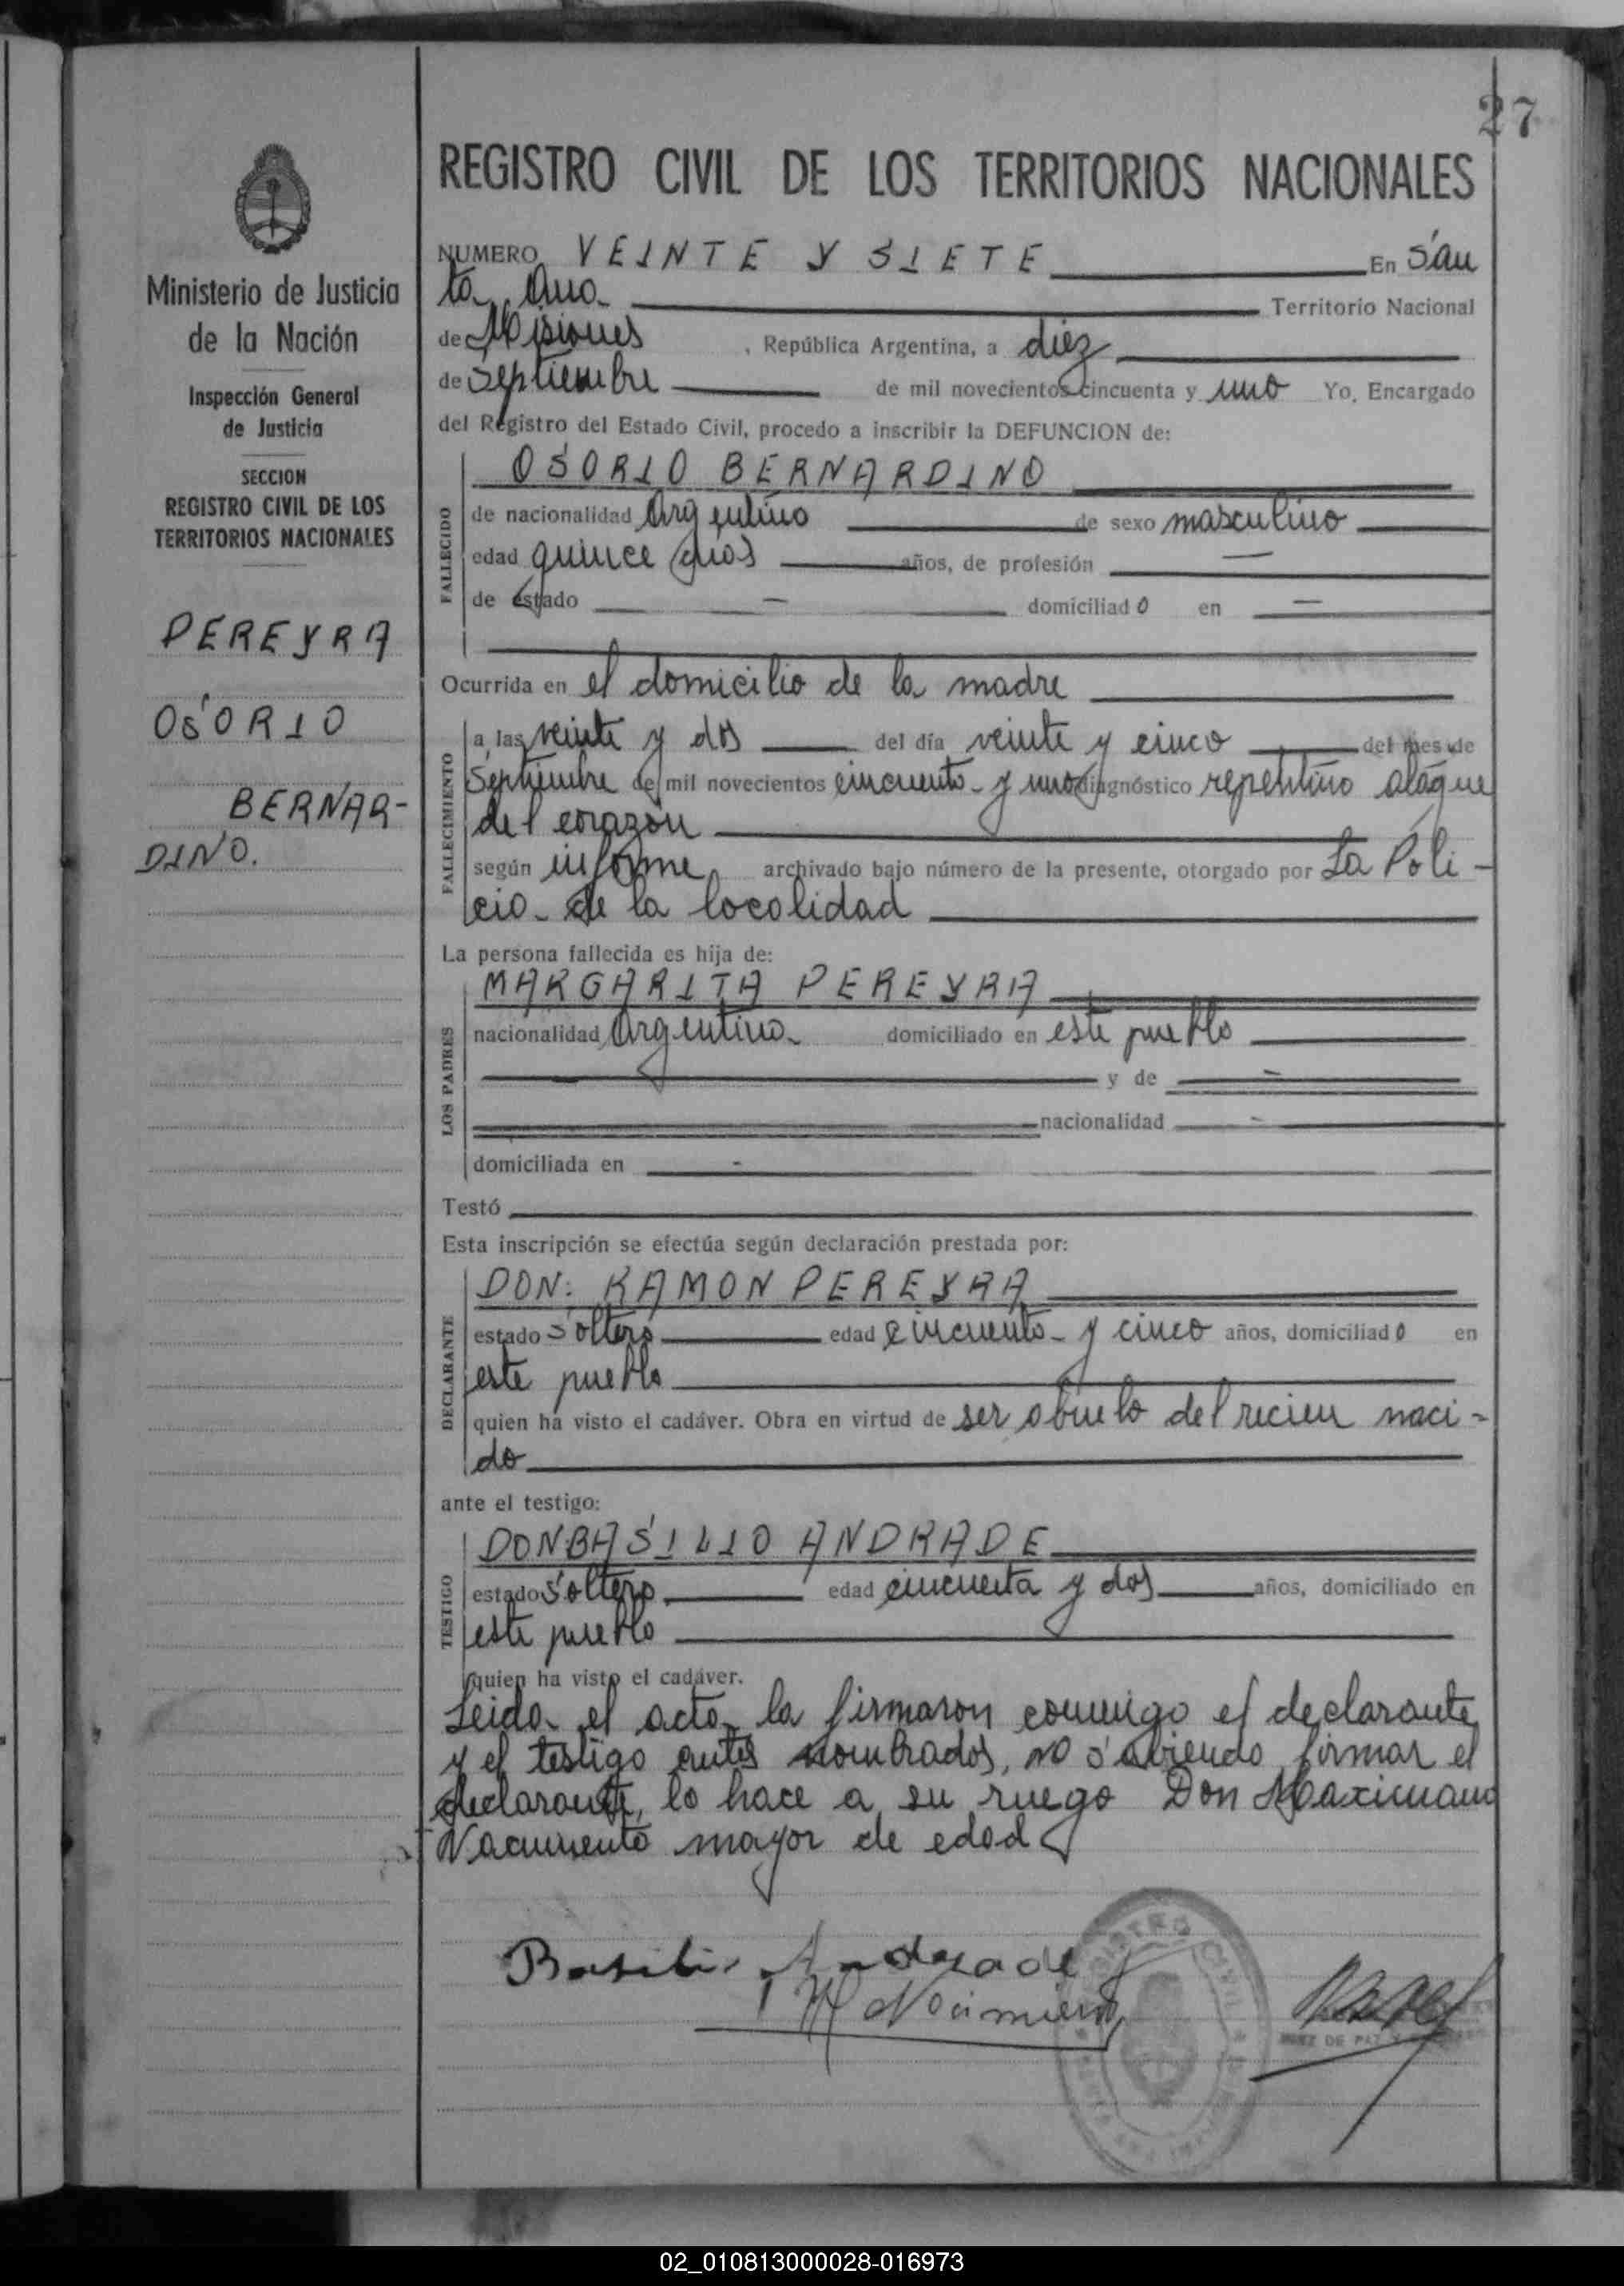 27
Ministerio de Justicia
de la Nación
Inspección General
de Justicia
SECCION
REGISTRO CIVIL DE LOS
TERRITORIOS NACIONALES
PEREYRA
OSORIO
BERNAR-
DINO.
REGISTRO CIVIL DE LOS TERRITORIOS NACIONALES
NUMERO VEINTE Y SIETE En San
ta Ana Territorio Nacional
de Misiones , República Argentina, a diez
de Septiembre de mil novecientos cincuenta y uno Yo, Encargado
del Registro del Estado Civil, procedo a inscribir la DEFUNCION de:
OSORIO BERNARDINO
FALLECIDO
de nacionalidad Argentino de sexo masculino
edad quince dias años, de profesión —
de estado — domiciliado en —
Ocurrida en el domicilio de la madre
FALLECIMIENTO
a las veinte y dos del día veinte y cinco del mes de
Septiembre de mil novecientos cincuenta y uno diagnóstico repentino ataque
del corazon
según informe archivado bajo número de la presente, otorgado por La Poli-
cia de la localidad
La persona fallecida es hija de:
LOS PADRES
MARGARITA PEREYRA
nacionalidad Argentina domiciliado en este pueblo
y de —
nacionalidad —
domiciliada en -
Testó
Esta inscripción se efectúa según declaración prestada por:
DECLARANTE
DON: RAMON PEREYRA
estado soltero edad cincuenta y cinco años, domiciliado en
este pueblo
quien ha visto el cadáver. Obra en virtud de ser abuelo del recien naci-
do
ante el testigo:
TESTIGO
DON BASILIO ANDRADE
estado soltero edad cincuenta y dos años, domiciliado en
este pueblo
quien ha visto el cadáver.
Leida el acta la firmaron conmigo el declarante
y el testigo antes nombrados, no sabiendo firmar el
declarante, lo hace a su ruego Don Maximiano
Nacimento mayor de edad
Basilio Andrade
M Nacimiento
REGISTRO CIVIL
JUEZ DE PAZ
02_010813000028-016973